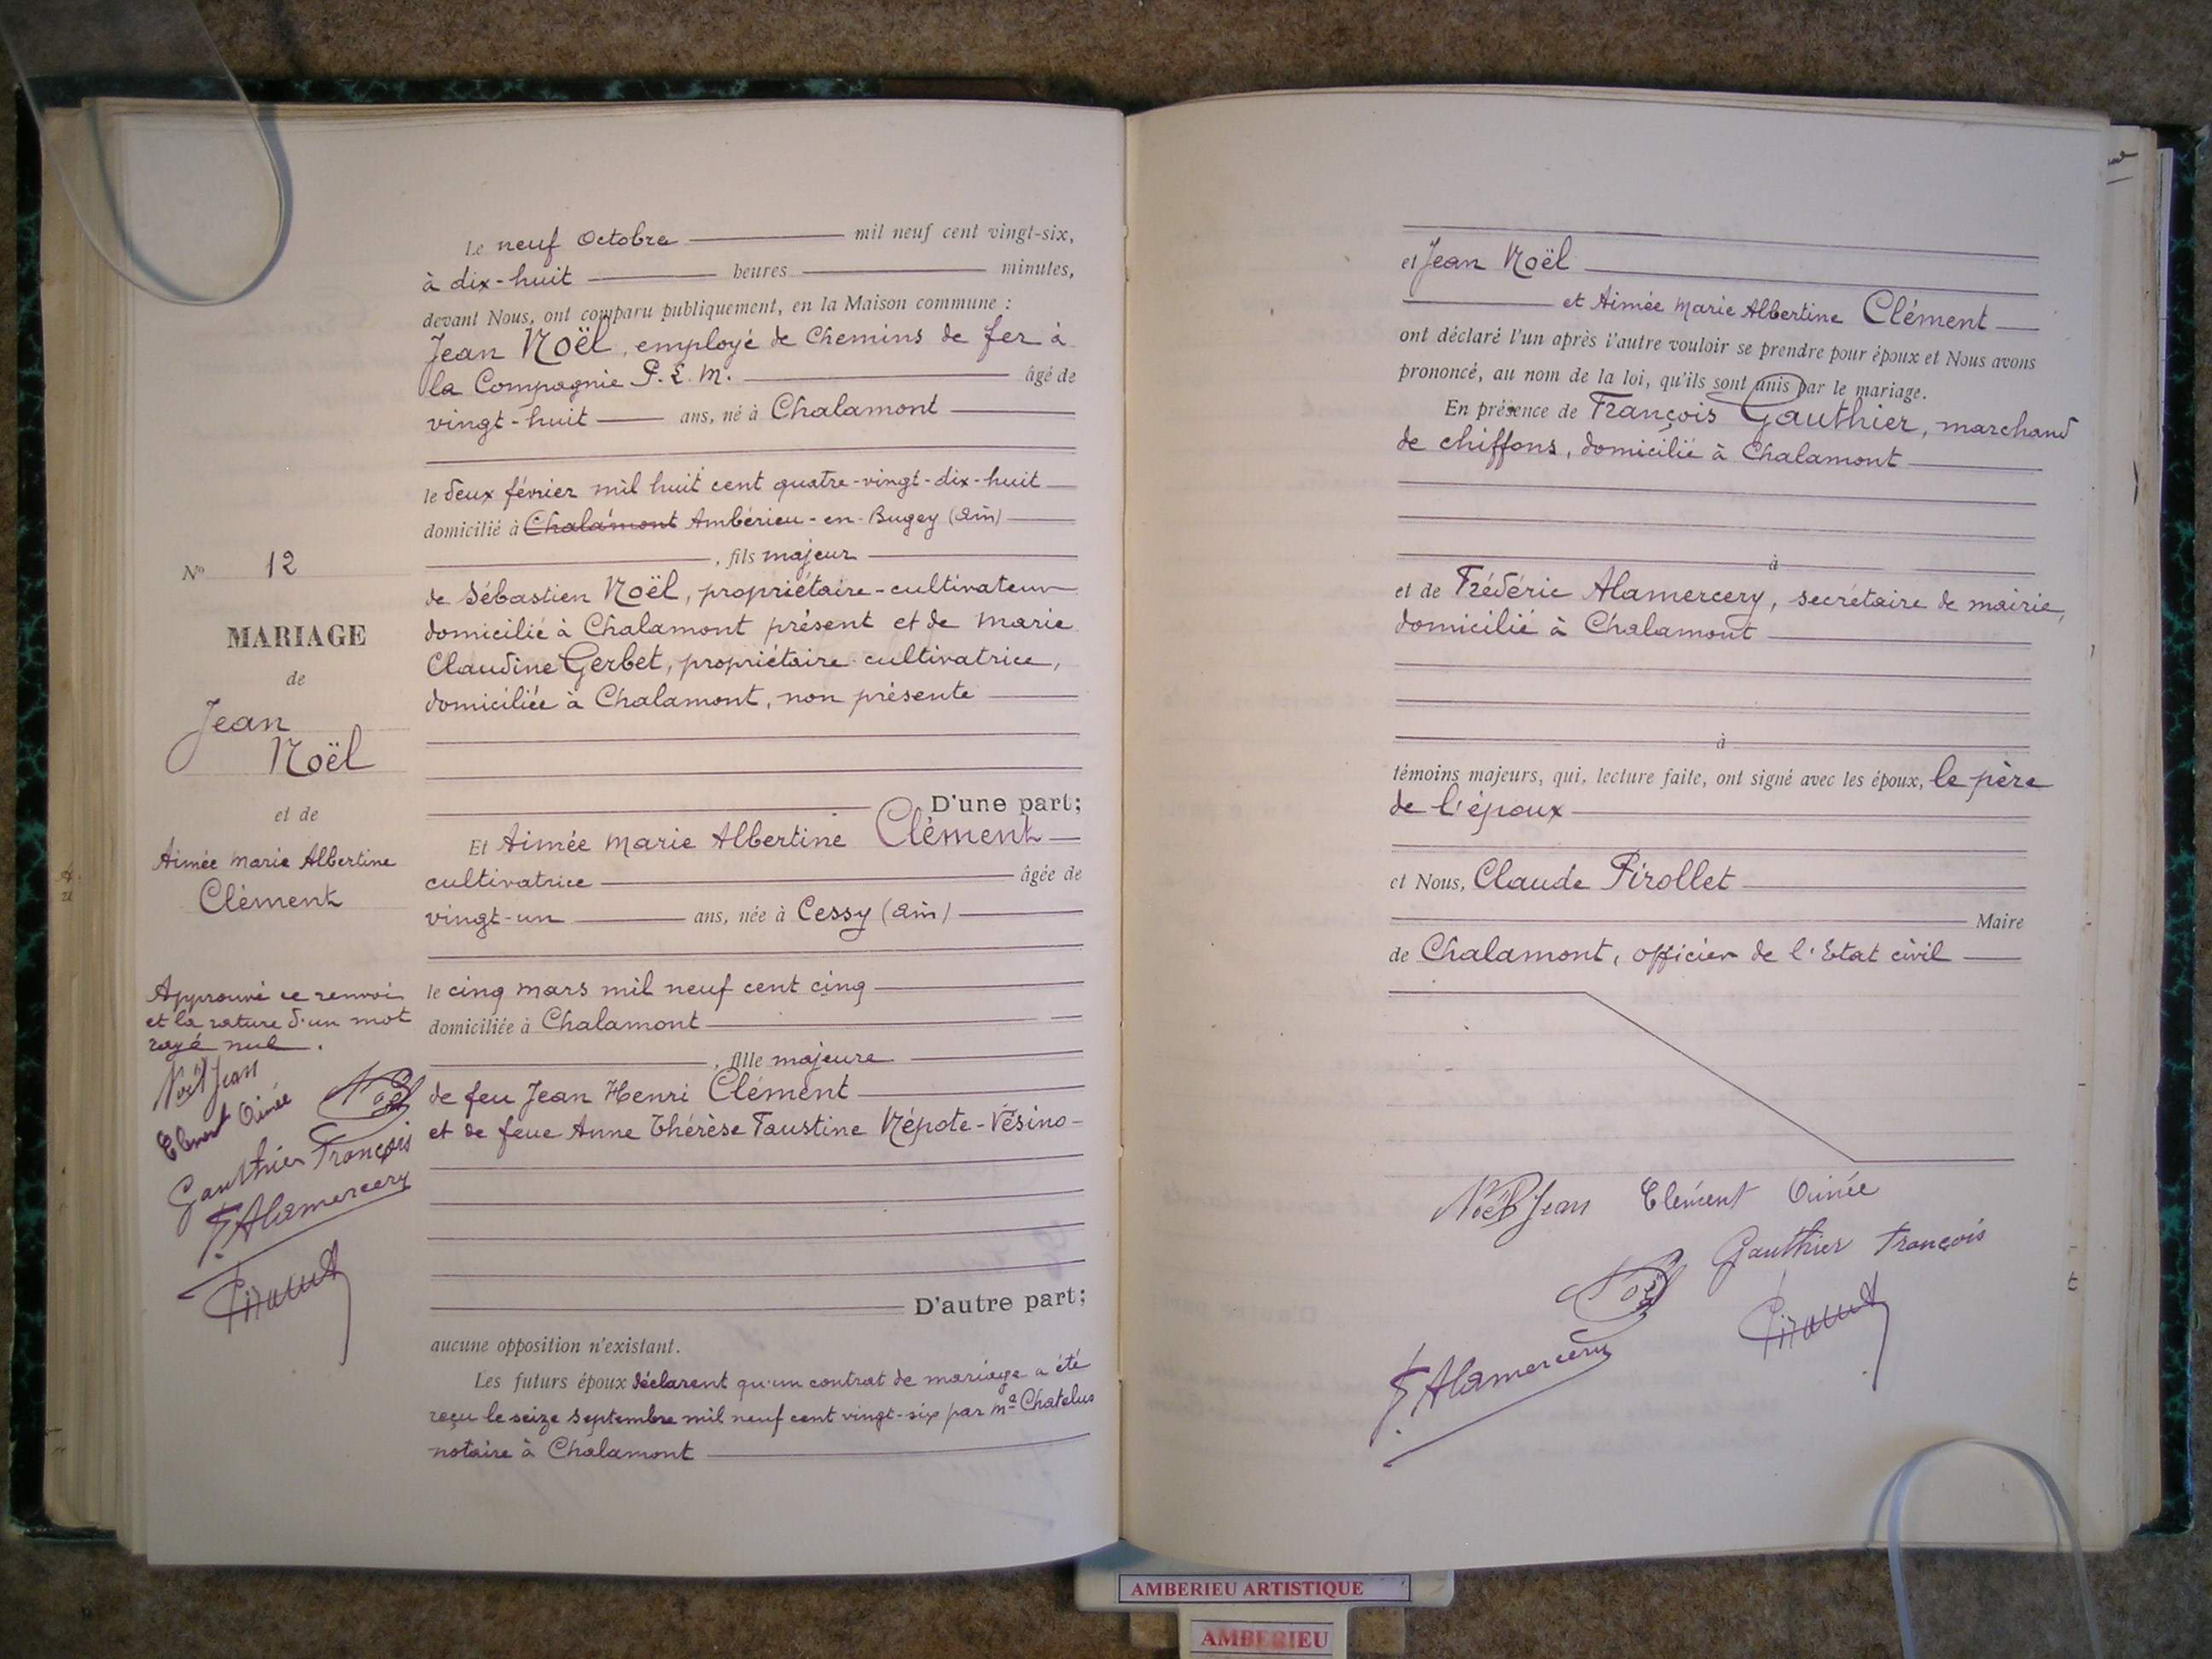 N° 12
MARIAGE
de
Jean
Noël
et de
Aimée Marie Albertine
Clément
Approuvé ce renvoi
et la rature d'un mot
rayé nul.
Noël Jean
Clément Aimée
Noël
Gauthier François
F. Alamercery
Le neuf Octobre mil neuf cent vingt-six,
à dix-huit heures minutes,
devant Nous, ont comparu publiquement, en la Maison commune :
Jean Noël, employé de Chemins de fer à
la Compagnie P. L. M. âgé de
vingt-huit ans, né à Chalamont
le deux février mil huit cent quatre-vingt-dix-huit
domicilié à Chalamont Ambérieu-en-Bugey (Ain)
, fils majeur
de Sébastien Noël, propriétaire-cultivateur
domicilié à Chalamont présent et de Marie
Claudine Gerbet, propriétaire cultivatrice,
domiciliée à Chalamont, non présente
D'une part;
Et Aimée Marie Albertine Clément
cultivatrice âgée de
vingt-un ans, née à Cessy (Ain)
le cinq mars mil neuf cent cinq
domiciliée à Chalamont
, fille majeure
de feu Jean Henri Clément
et de feue Anne Thérèse Faustine Népote-Vésino
D'autre part;
aucune opposition n'existant.
Les futurs époux déclarent qu'un contrat de mariage a été
reçu le seize Septembre mil neuf cent vingt-six par Me Chatelus
notaire à Chalamont
et Jean Noël
et Aimée Marie Albertine Clément
ont déclaré l'un après l'autre vouloir se prendre pour époux et Nous avons
prononcé, au nom de la loi, qu'ils sont unis par le mariage.
En présence de François Gauthier, marchand
de chiffons, domicilié à Chalamont
à
et de Frédéric Alamercery, secrétaire de mairie,
domicilié à Chalamont
à
témoins majeurs, qui, lecture faite, ont signé avec les époux, le père
de l'époux
et Nous, Claude Pirollet
Maire
de Chalamont, officier de l'Etat civil
Noël Jean Clément Aimée
Gauthier François
Noël
F. Alamercery
AMBERIEU ARTISTIQUE
AMBERIEU